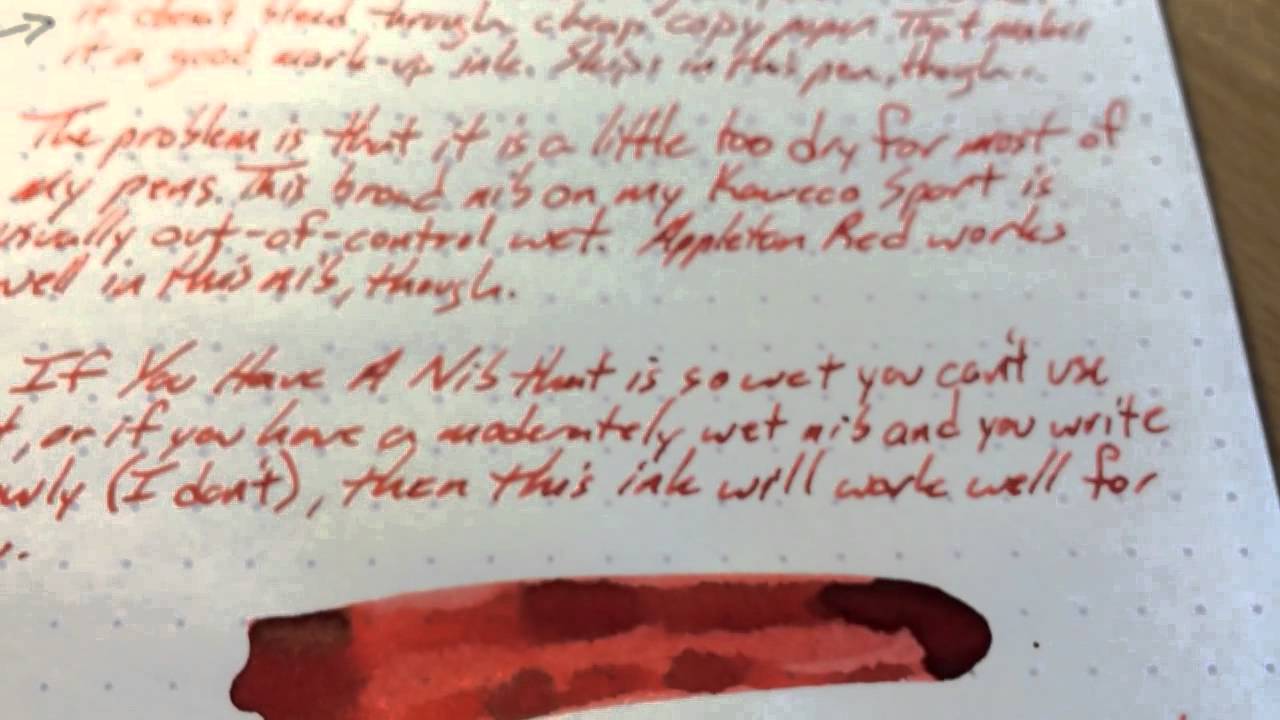 it doesn't bleed through cheap copy paper That makes
it a good mark-up ink. Skips in this pen, though.
The problem is that it is a little too dry for most of
my pens. This broad nib on my Kaweco Sport is
usually out-of-control wet. Appleton Red works
well in this nib, though.
If You Have A Nib that is so wet you can't use
t, or if you have a moderately wet nib and you write
owly (I don't), then this ink will work well for